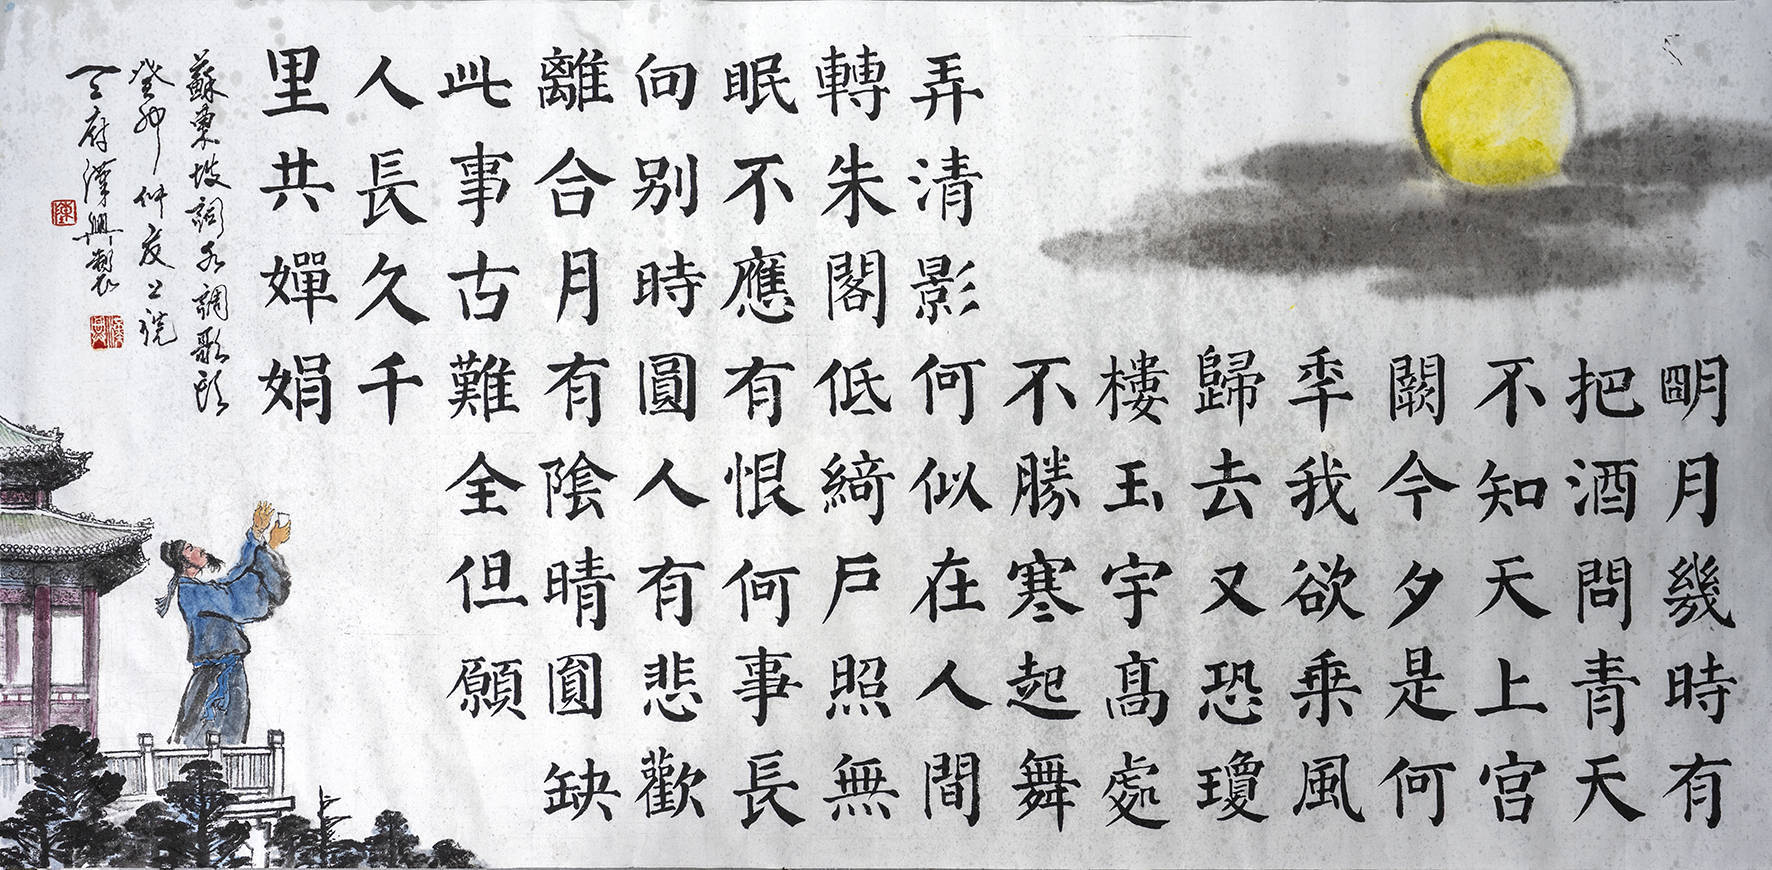 朙月幾時有
把酒問青天
不知天上宫
闕今夕是何
秊我欲乗風
歸去又恐瓊
樓玉宇髙處
不勝寒起舞
弄清影何似在人間
轉朱閣低綺户照無
眠不應有恨何事長
向别時圓人有悲歡
離合月有陰晴圓缺
此事古難全但願
人長久千
里共嬋娟
蘇東坡詞水調歌頭
癸卯仲夏上浣
天府漢興製
陳